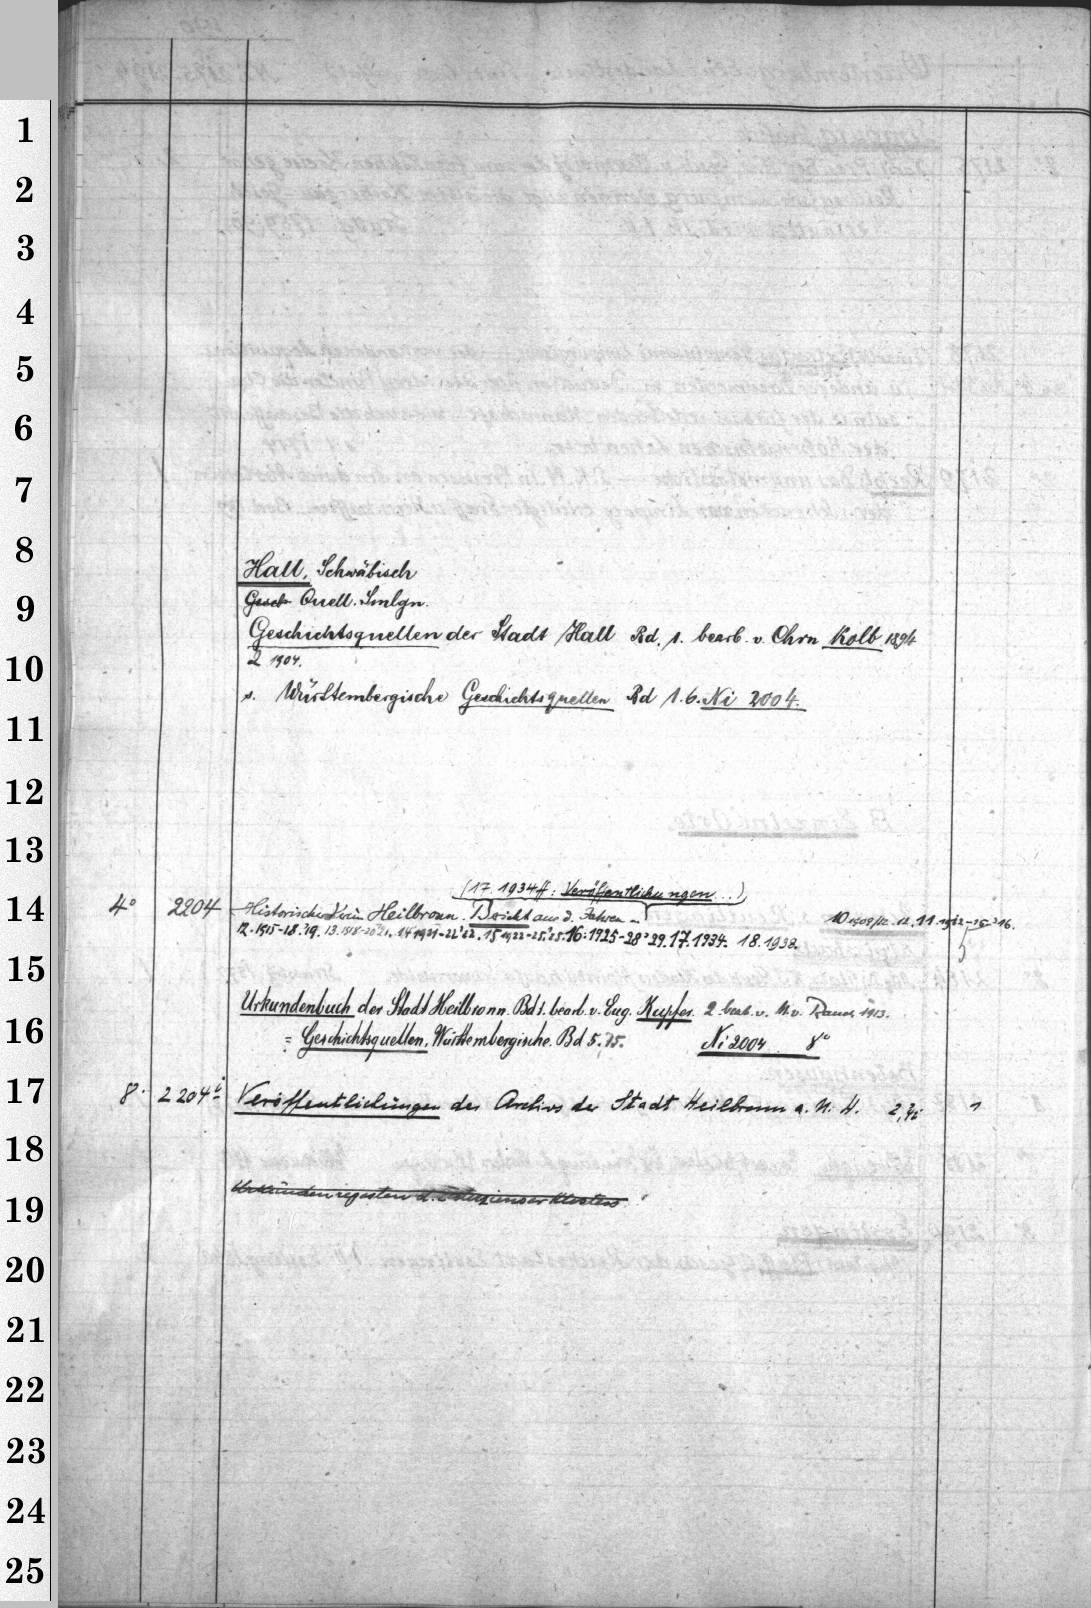 1
2
3
4
5
6
7
8
Hall, Schwäbisch
9
Gesch Quell. Smlgn.
Geschichtsquellen der Stadt Hall Bd. 1. bearb. v. Chrn Kolb 1894
10
2 1904.
s. Württembergische Geschichtsquellen Bd 1.6. Ni 2004.
11
12
13
(17. 1934ff: Veröffentlichungen...)
14 4° 2204 Historischer Verein Heilbronn. Bericht aus d. Jahren 10 1909/12. 12. 11. 1912-15. 16.
12. 1915-18. 19. 13. 1918-20. 21. 14 1921-22. 22. 15 1922-25. 25. 16: 1925-28. 29. 17. 1934. 18. 1938.
15
Urkundenbuch der Stadt Heilbronn. Bd 1. bearb. v. Eug. Knupfer. 2 bearb. v. M. v. Rauch 1913.
16 = Geschichtsquellen, Württembergische. Bd 5. Ni 2004 8°
17 8° 2204 Veröffentlichungen des Archivs der Stadt Heilbronn a. N. H. 2, 1
18
Urkundenregesten d. Zisterzienser Klosters
19
20
21
22
23
24
25